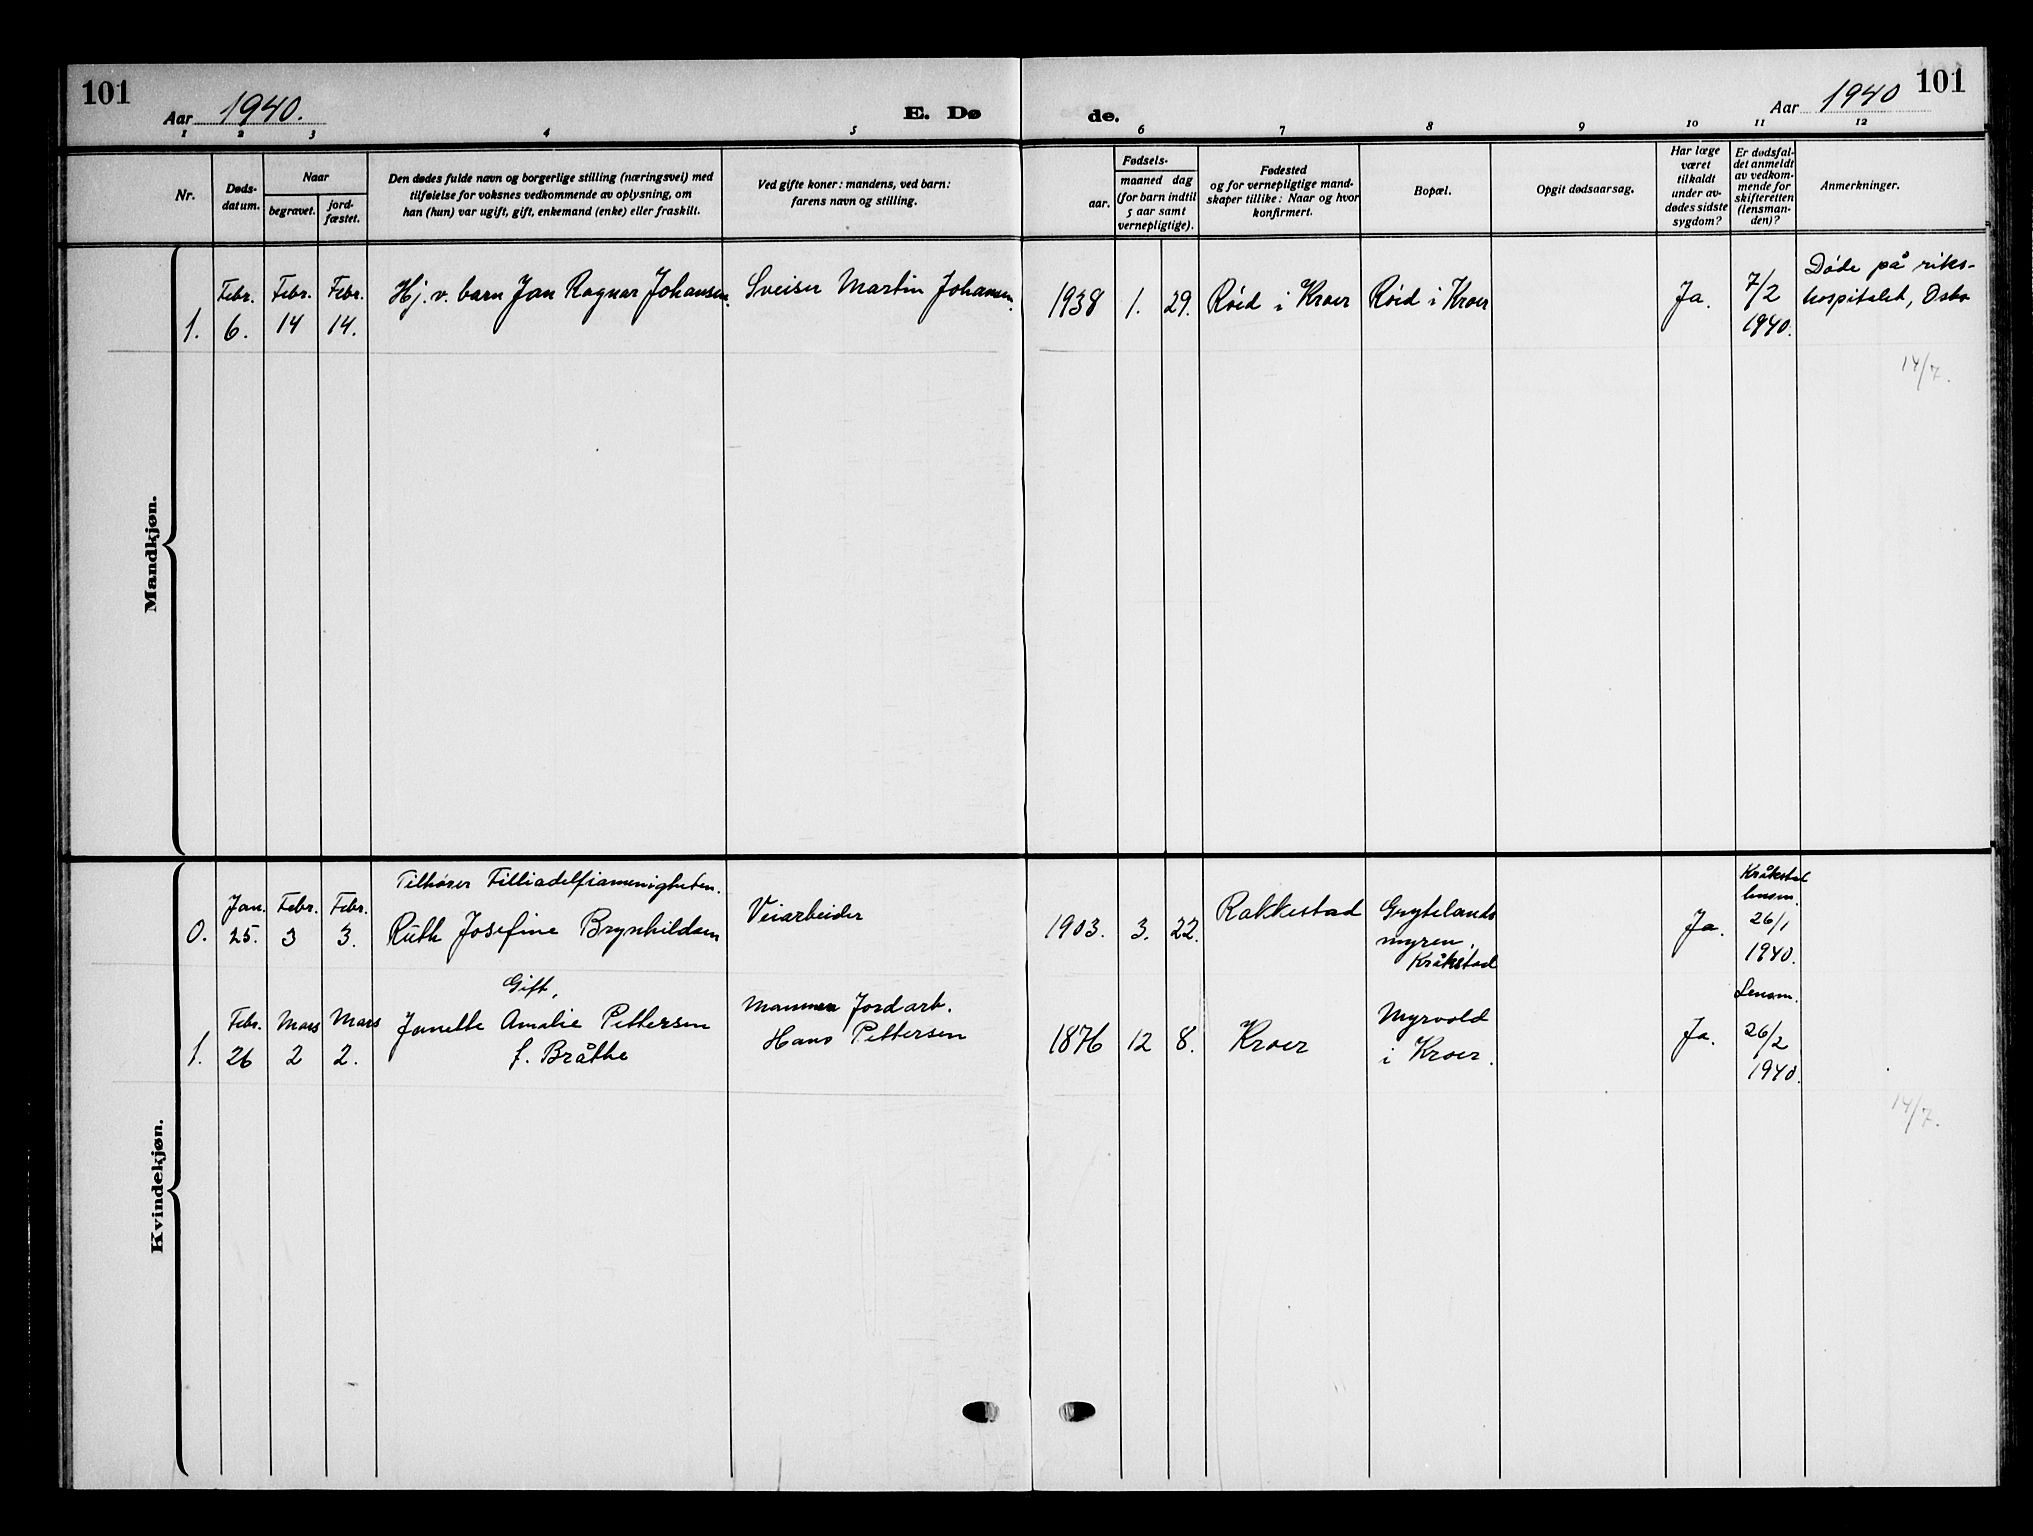 101
Aar 1940.
E. Dø
de.
Aar 1940
101
1 2 3 4 5 6 7 8 9 10 11 12
Nr.
Døds-
datum.
Naar
begravet.
jord-
fæstet.
Den dødes fulde navn og borgerlige stilling (næringsvei) med
tilføielse for voksnes vedkommende av oplysning, om
han (hun) var ugift, gift, enkemand (enke) eller fraskilt.
Ved gifte koner: mandens, ved barn:
farens navn og stilling.
Fødsels-
aar.
maaned dag
(for barn indtil
5 aar samt
vernepligtige).
Fødested
og for vernepligtige mand-
skaper tillike: Naar og hvor
konfirmert.
Bopæl.
Opgit dødsaarsag.
Har læge
været
tilkaldt
under av-
dødes sidste
sygdom?
Er dødsfal-
det anmeldt
av vedkom-
mende for
skifteretten
(lensman-
den)?
Anmerkninger.
Mandkjøn.
1.
Febr.
6.
Febr.
14
Febr.
14.
Hj. v. barn Jan Ragnar Johansen.
Sveiser Martin Johansen.
1938
1.
29.
Røid i Kroer
Røid i Kroer
Ja.
7/2
1940.
Døde på riks-
hospitalet, Oslo
14/7.
Kvindekjøn.
0.
Jan.
25.
Febr.
3
Febr.
3.
Tilhører Filliadelfiamenigheten.
Ruth Josefine Brynhildsen
Veiarbeider
1903.
3.
22.
Rakkestad
Grytelands
myren.
Kråkstad
Ja.
Kråkstad
lensm.
26/1
1940.
1.
Febr.
26
Mars
2
Mars
2.
Gift,
Janette Amalie Pettersen
f. Bråthe
Mannen Jordarb.
Hans Pettersen
1876
12
8.
Kroer
Myrvold
i Kroer.
Ja.
Lensm.
26/2
1940.
14/7.